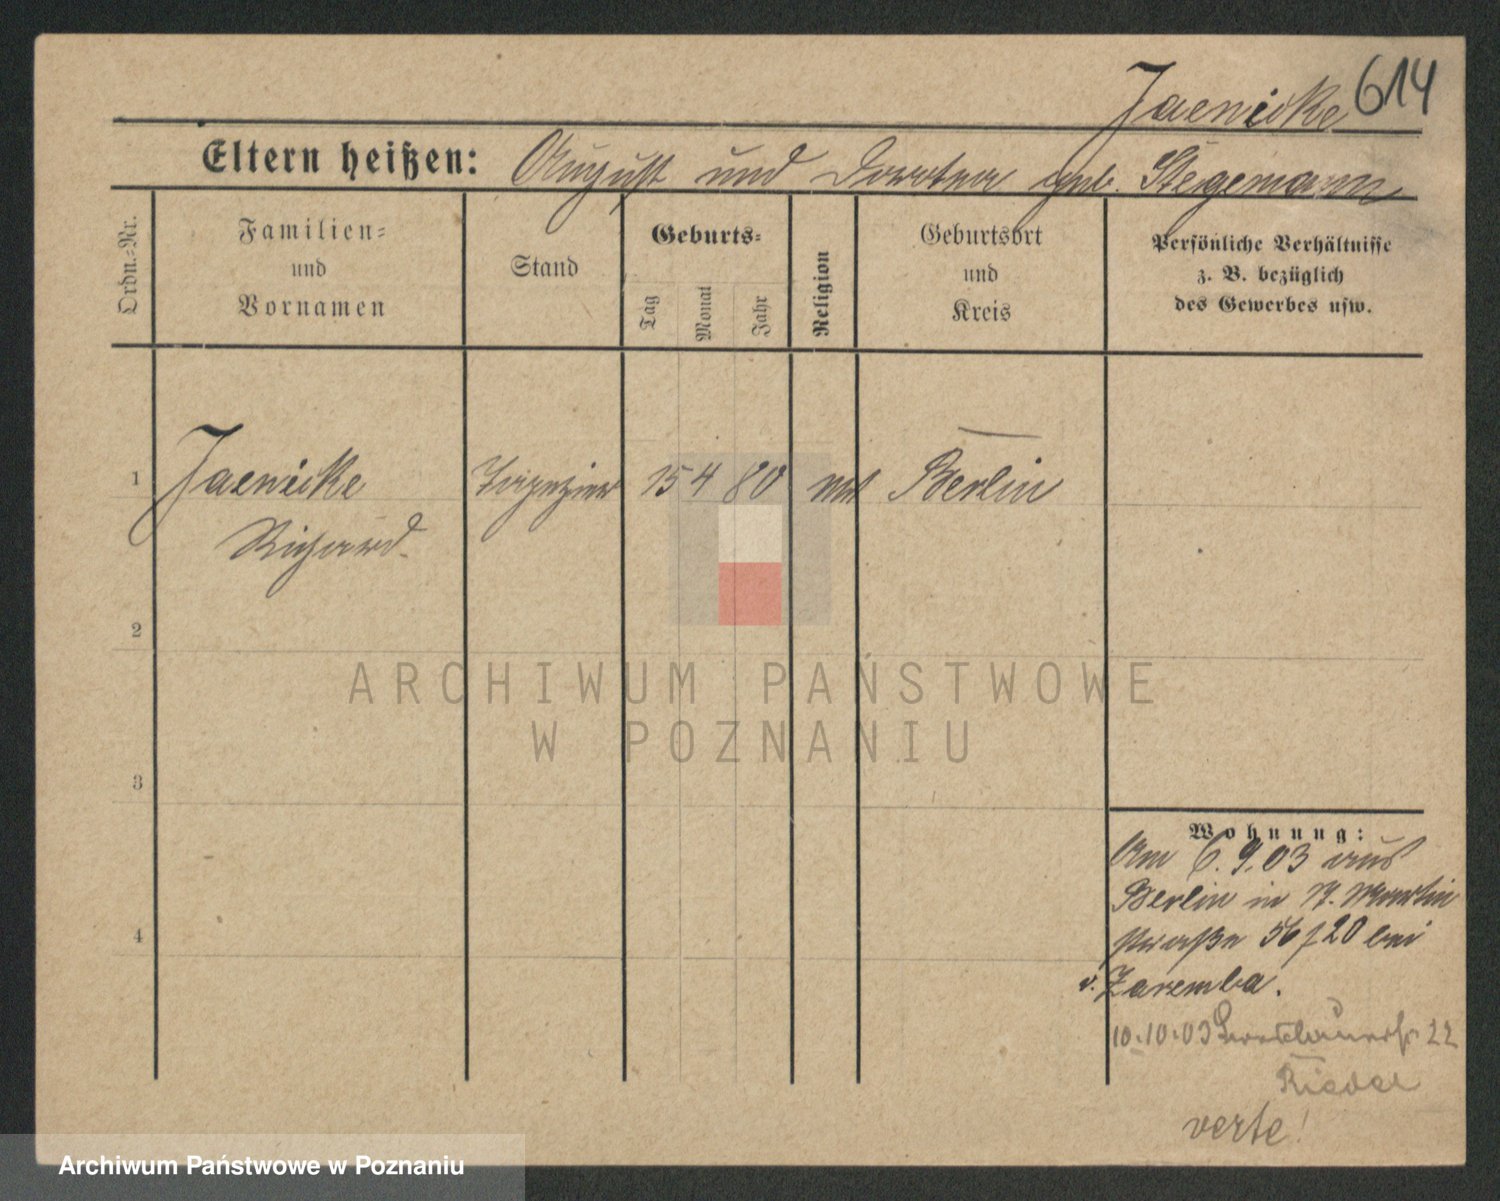 Jaenicke 614
Eltern heißen: August und Dorotea geb. Stegemann
Ordn.-Nr.
Familien-
und
Vornamen
Stand
Geburts-
Tag
Monat
Jahr
Religion
Geburtsort
und
Kreis
Persönliche Verhältnisse
z. B. bezüglich
des Gewerbes usw.
1 Jaenicke Tapezier 15 4 80 Berlin
Richard
2
3
4
ARCHIWUM PAŃSTWOWE
W POZNANIU
Wohnung:
Am 6.9.03 aus
Berlin in St. Martin
straße 56/20 bei
v. Zaremba.
10.10.03 22
Riedel
verte!
Archiwum Państwowe w Poznaniu